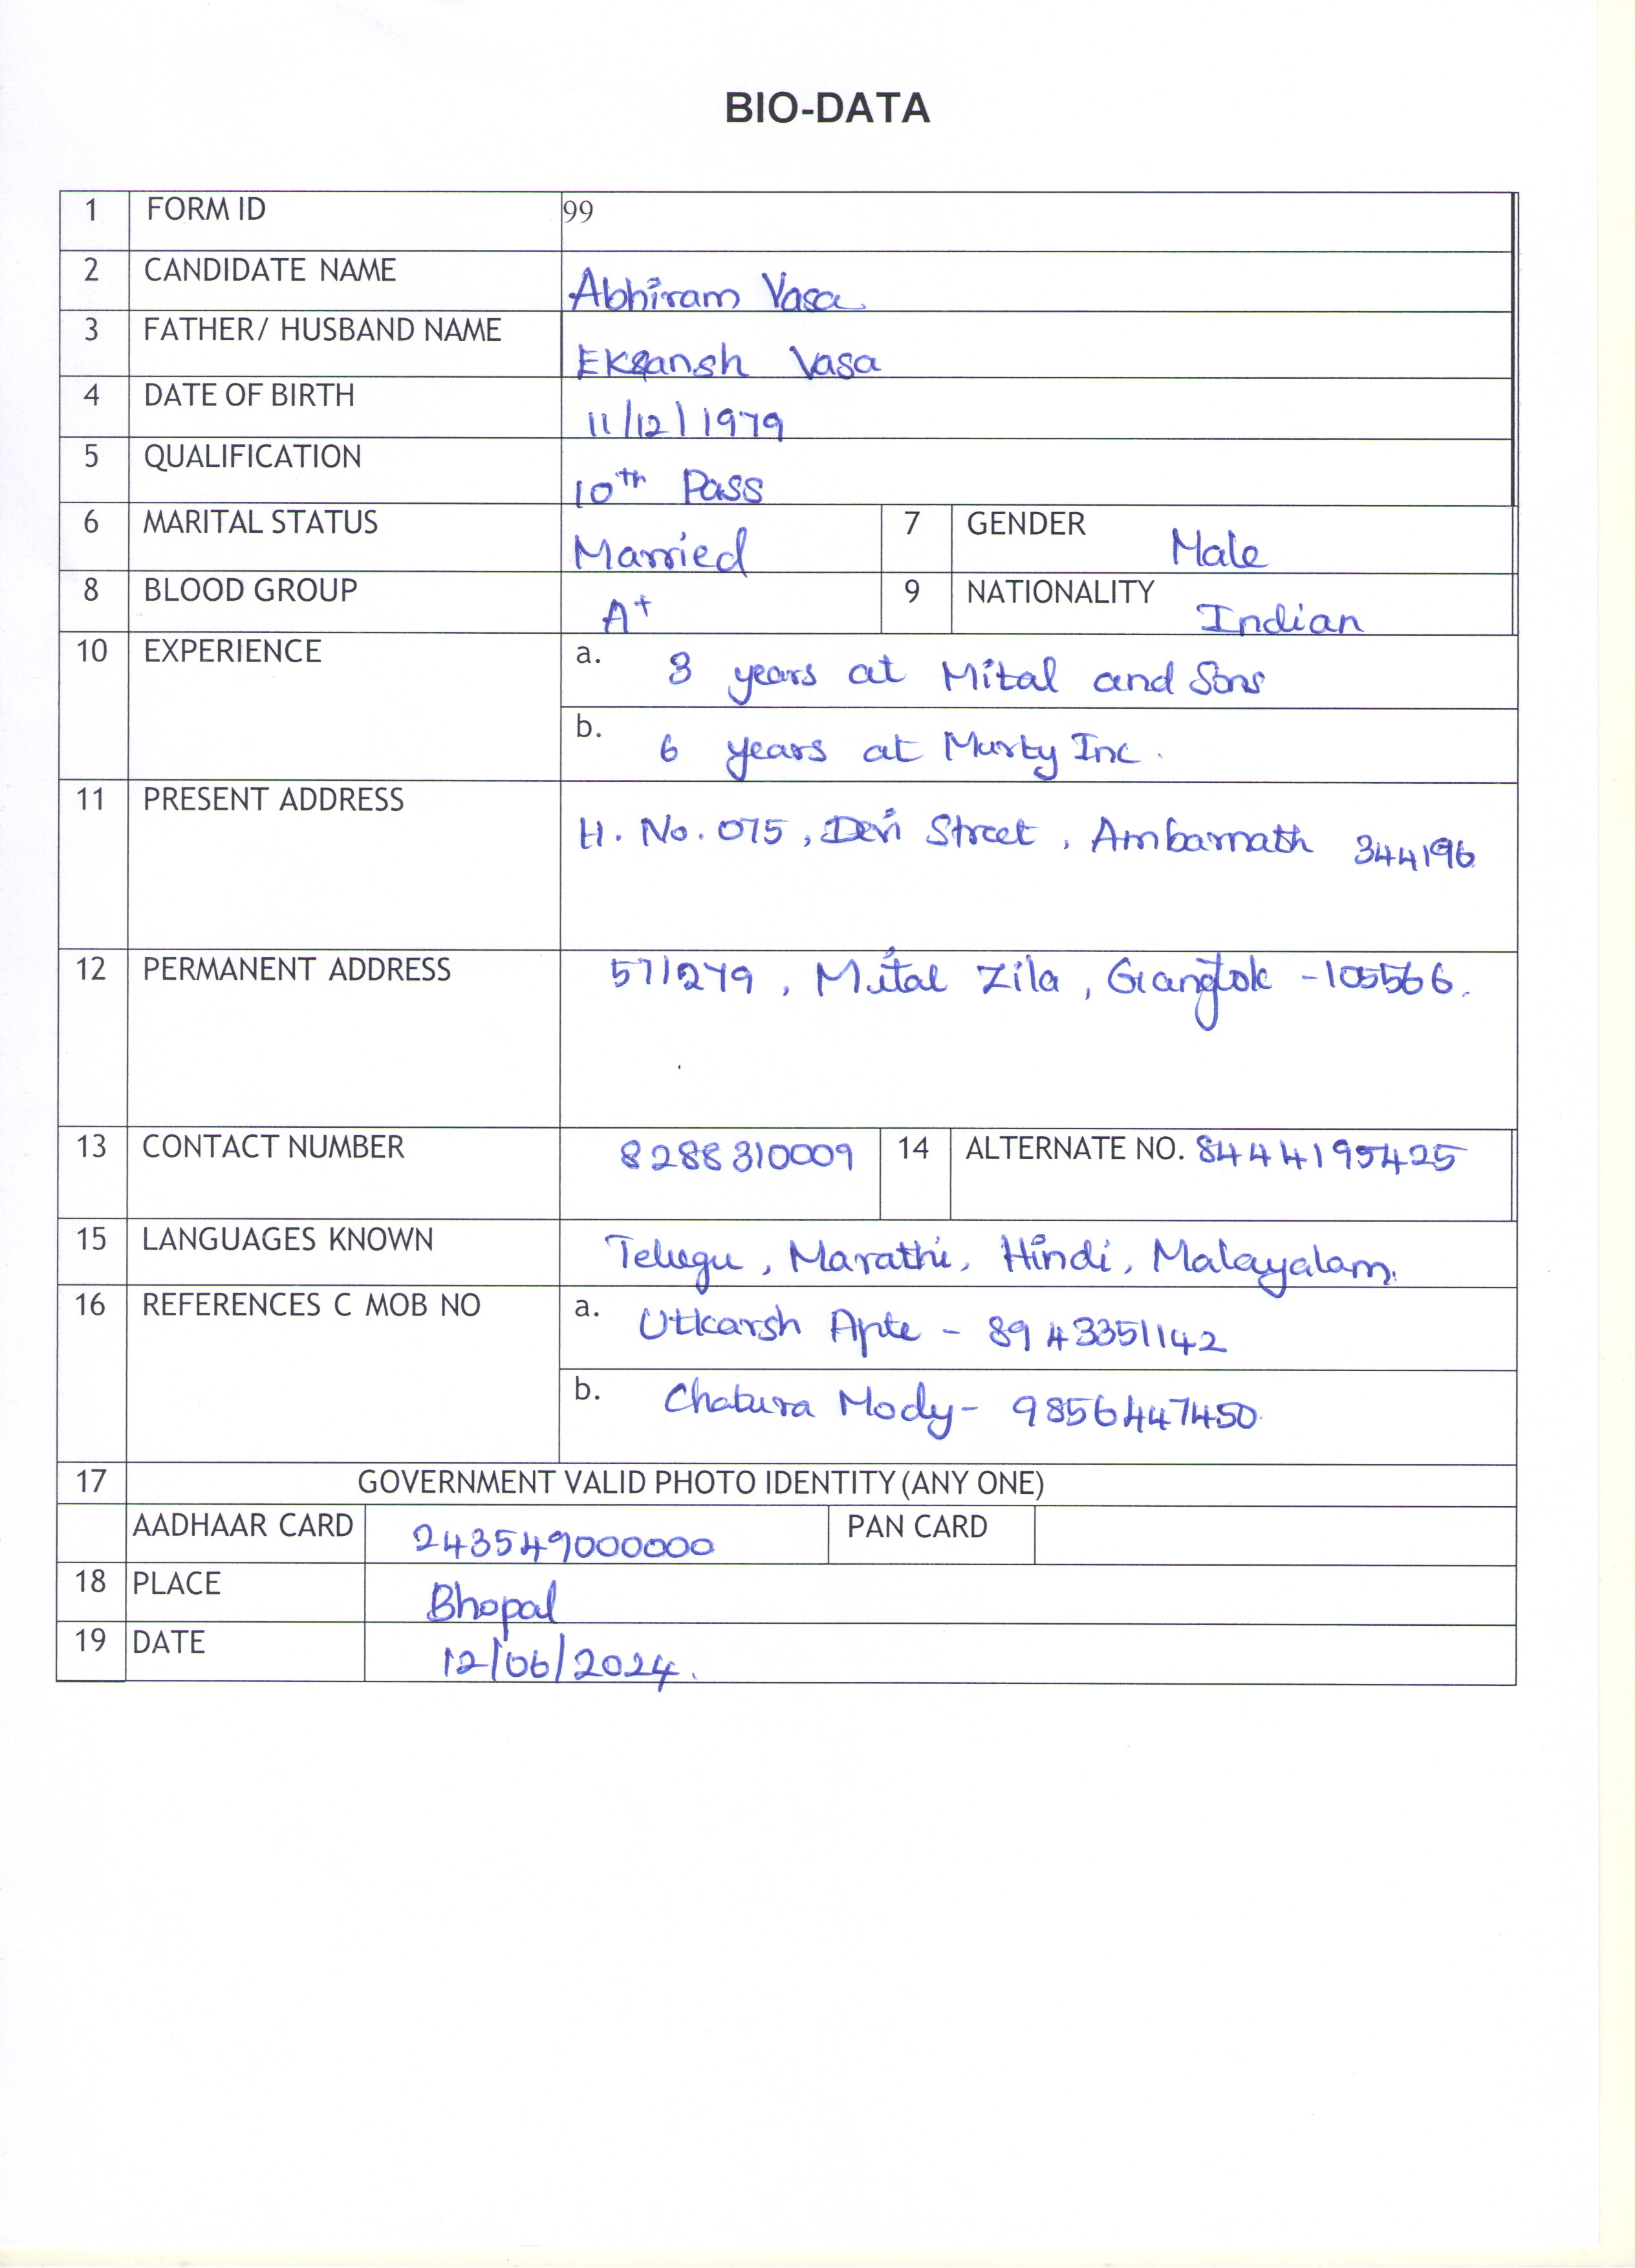 BIO-DATA
1 FORM ID 99
2 CANDIDATE NAME Abhiram Vasa
3 FATHER/ HUSBAND NAME Eksansh Vasa
4 DATE OF BIRTH 11/12/1979
5 QUALIFICATION 10th Pass
6 MARITAL STATUS Married 7 GENDER Male
8 BLOOD GROUP A+ 9 NATIONALITY Indian
10 EXPERIENCE a. 3 years at Mital and Sons
b. 6 years at Murty Inc.
11 PRESENT ADDRESS H. No. 075, Devi Street, Ambarnath 344196
12 PERMANENT ADDRESS 571279, Mital Zila, Gangtok -105566.
13 CONTACT NUMBER 8288310009 14 ALTERNATE NO. 84444195425
15 LANGUAGES KNOWN Telugu, Marathi, Hindi, Malayalam.
16 REFERENCES C MOB NO a. Utkarsh Apte - 8943351142
b. Chatura Mody- 9856447450
17 GOVERNMENT VALID PHOTO IDENTITY (ANY ONE)
AADHAAR CARD 243549000000 PAN CARD
18 PLACE Bhopal
19 DATE 12/06/2024.